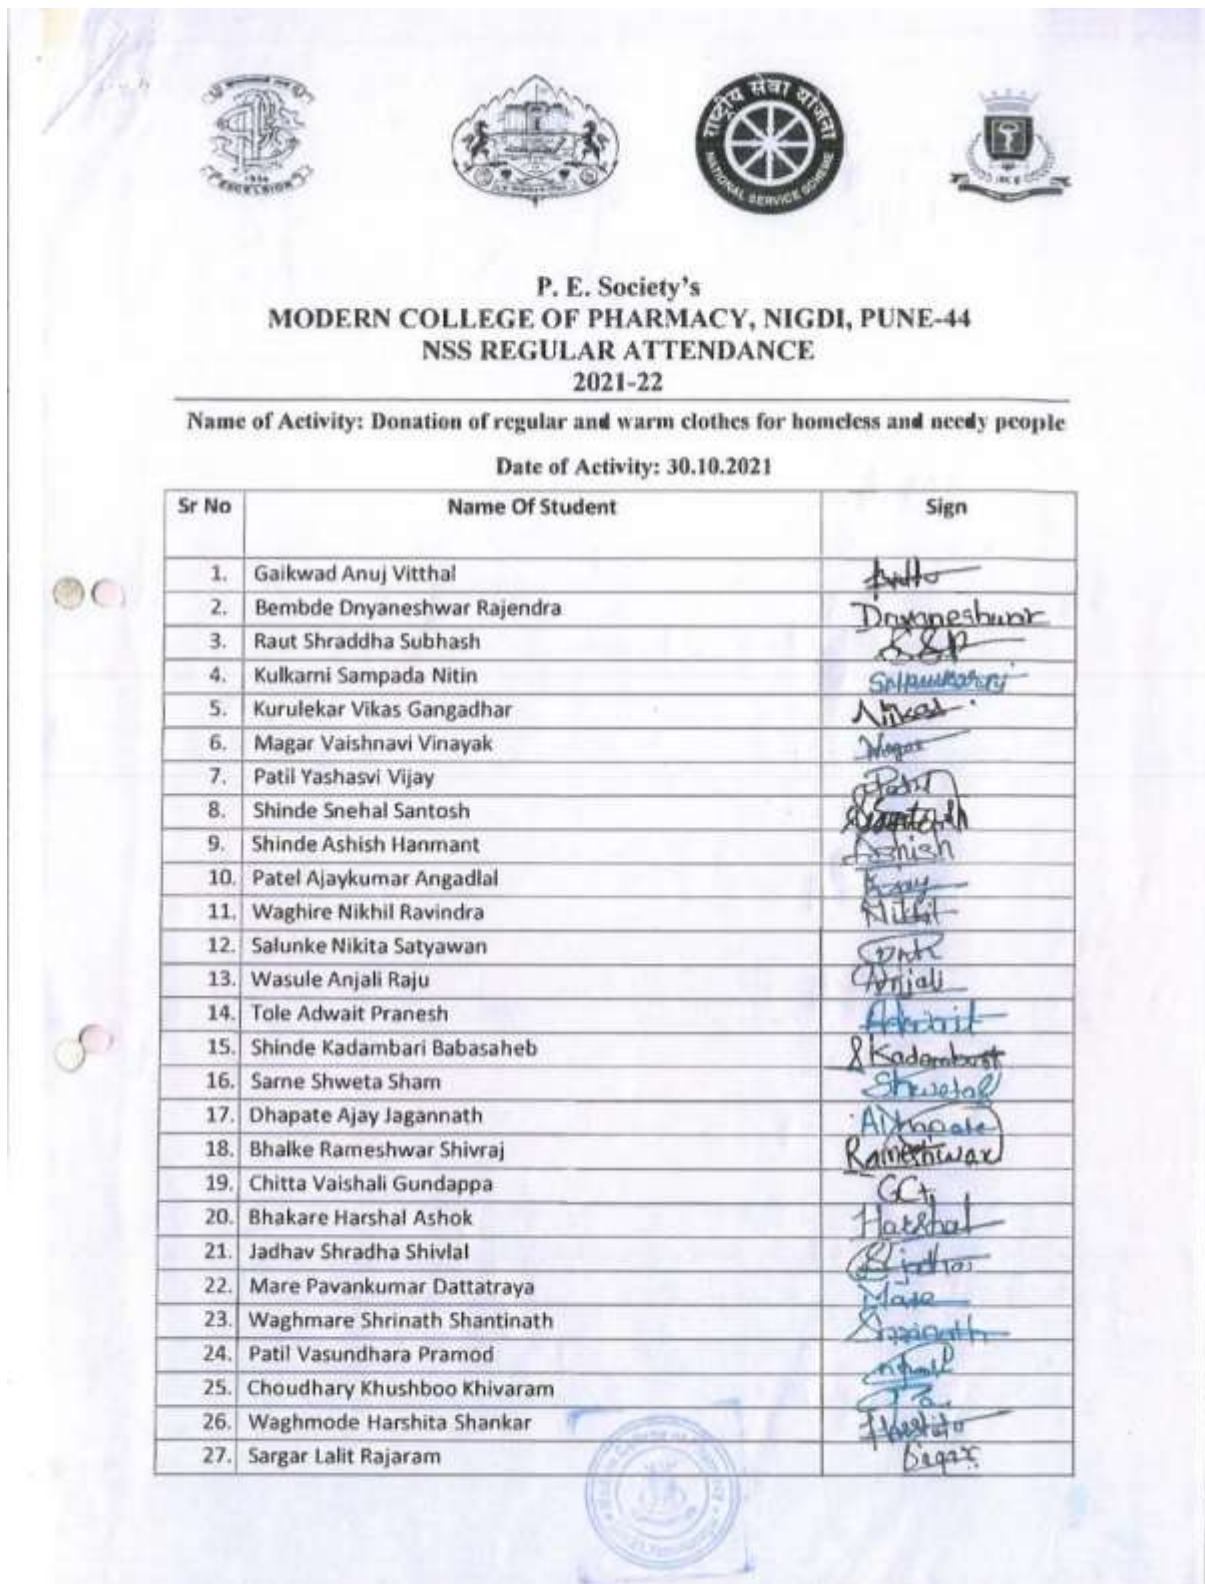 1934
EXCELSIOR
राष्ट्रीय सेवा योजना
NATIONAL SERVICE SCHEME
P. E. Society's
MODERN COLLEGE OF PHARMACY, NIGDI, PUNE-44
NSS REGULAR ATTENDANCE
2021-22
Name of Activity: Donation of regular and warm clothes for homeless and needy people
Date of Activity: 30.10.2021
Sr No Name Of Student Sign
1. Gaikwad Anuj Vitthal
2. Bembde Dnyaneshwar Rajendra Dnyaneshwar
3. Raut Shraddha Subhash
4. Kulkarni Sampada Nitin
5. Kurulekar Vikas Gangadhar Vikas
6. Magar Vaishnavi Vinayak Magar
7. Patil Yashasvi Vijay Patil
8. Shinde Snehal Santosh
9. Shinde Ashish Hanmant Ashish
10. Patel Ajaykumar Angadlal Ajay
11. Waghire Nikhil Ravindra Nikhil
12. Salunke Nikita Satyawan
13. Wasule Anjali Raju Anjali
14. Tole Adwait Pranesh Adwait
15. Shinde Kadambari Babasaheb
16. Sarne Shweta Sham
17. Dhapate Ajay Jagannath ADhapate
18. Bhalke Rameshwar Shivraj Rameshwar
19. Chitta Vaishali Gundappa
20. Bhakare Harshal Ashok Harshal
21. Jadhav Shradha Shivlal
22. Mare Pavankumar Dattatraya Mare
23. Waghmare Shrinath Shantinath Shrinath
24. Patil Vasundhara Pramod
25. Choudhary Khushboo Khivaram
26. Waghmode Harshita Shankar
27. Sargar Lalit Rajaram